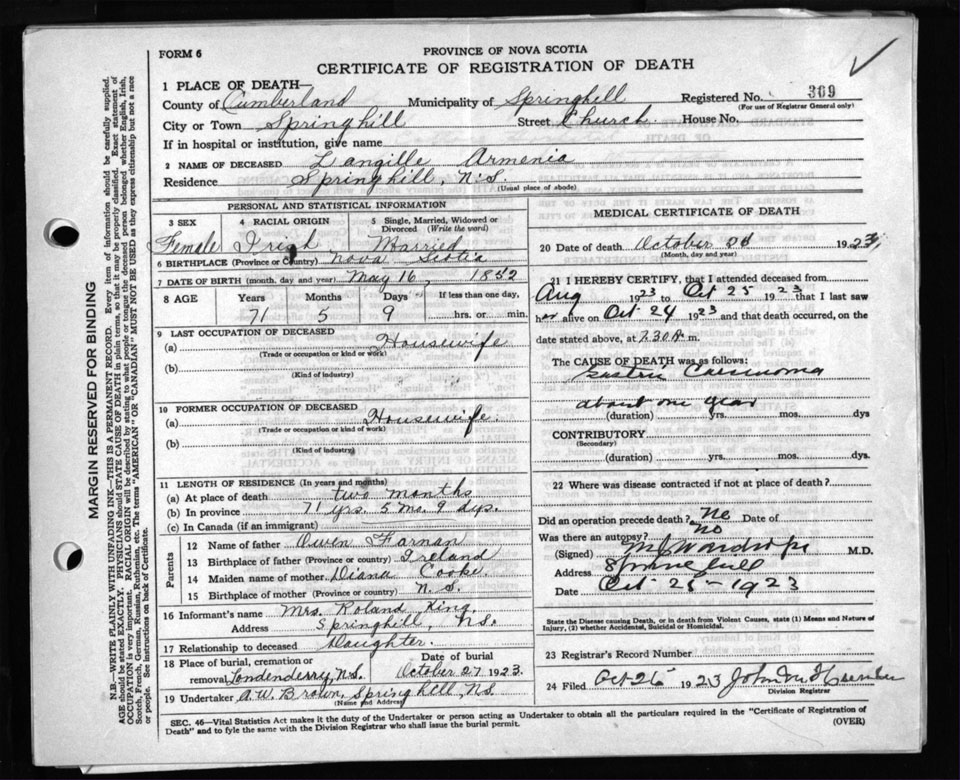 FORM 6
PROVINCE OF NOVA SCOTIA
CERTIFICATE OF REGISTRATION OF DEATH
1 PLACE OF DEATH—
County of Cumberland Municipality of Springhill Registered No. 309
(For use of Registrar General only)
City or Town Springhill Street Church House No.
If in hospital or institution, give name
2 NAME OF DECEASED Langille Armenia
Residence Springhill, N.S.
(Usual place of abode)
PERSONAL AND STATISTICAL INFORMATION
3 SEX 4 RACIAL ORIGIN 5 Single, Married, Widowed or Divorced (Write the word)
Female Irish Married
6 BIRTHPLACE (Province or Country) Nova Scotia
7 DATE OF BIRTH (month, day and year) May 16, 1852
8 AGE Years Months Days If less than one day,
71 5 9 hrs. or min.
9 LAST OCCUPATION OF DECEASED
(a) Housewife
(Trade or occupation or kind of work)
(b)
(Kind of industry)
10 FORMER OCCUPATION OF DECEASED
(a) Housewife
(Trade or occupation or kind of work)
(b)
(Kind of industry)
11 LENGTH OF RESIDENCE (In years and months)
(a) At place of death two months
(b) In province 71 yrs. 5 mo. 9 dys.
(c) In Canada (if an immigrant)
Parents
12 Name of father Owen Farnan
13 Birthplace of father (Province or country) Ireland
14 Maiden name of mother Diana Cooke
15 Birthplace of mother (Province or country) N.S.
16 Informant's name Mrs. Roland King
Address Springhill, N.S.
17 Relationship to deceased Daughter.
18 Place of burial, cremation or removal Londenderry, N.S. Date of burial October 27 1923.
19 Undertaker A.W. Brown, Springhill, N.S.
(Name and Address)
MEDICAL CERTIFICATE OF DEATH
20 Date of death October 1923
(Month, day and year)
21 I HEREBY CERTIFY, that I attended deceased from
Aug 1923 to Oct 25 1923 that I last saw
her alive on Oct 24 1923 and that death occurred, on the
date stated above, at 2 30 A m.
The CAUSE OF DEATH was as follows:
Gastric Carcinoma
about one year
(duration) yrs. mos. dys
CONTRIBUTORY
(Secondary)
(duration) yrs. mos. dys.
22 Where was disease contracted if not at place of death?
Did an operation precede death? No Date of
Was there an autopsy? No
(Signed) M.D.
Address Springhill
Date Oct 25 - 1923
State the Disease causing Death, or in death from Violent Causes, state (1) Means and Nature of Injury, (2) whether Accidental, Suicidal or Homicidal.
23 Registrar's Record Number
24 Filed Oct 26 1923 John
Division Registrar
SEC. 46—Vital Statistics Act makes it the duty of the Undertaker or person acting as Undertaker to obtain all the particulars required in the "Certificate of Registration of
Death" and to fyle the same with the Division Registrar who shall issue the burial permit.
(OVER)
MARGIN RESERVED FOR BINDING
N.B.—WRITE PLAINLY WITH UNFADING INK—THIS IS A PERMANENT RECORD. Every item of information should be carefully supplied.
AGE should be stated EXACTLY. PHYSICIANS should STATE CAUSE OF DEATH in plain terms, so that it may be properly classified. Exact statement of
OCCUPATION is very important. RACIAL ORIGIN will be described by stating to what people or tongue the deceased person belonged whether English, Irish,
Scotch, French, German, Russian, Ruthenian, etc. The terms "AMERICAN" OR "CANADIAN" MUST NOT BE USED as they express citizenship but not a race
or people. See instructions on back of Certificate.